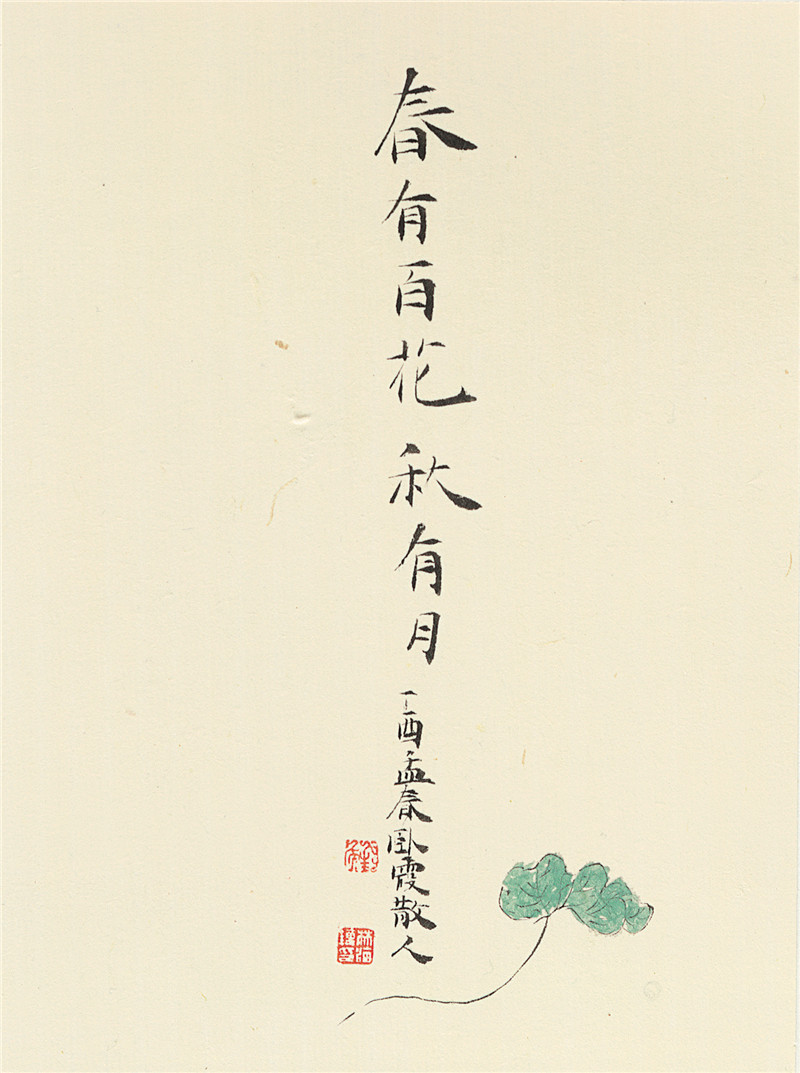 春有百花秋有月
丁酉孟春卧霞散人